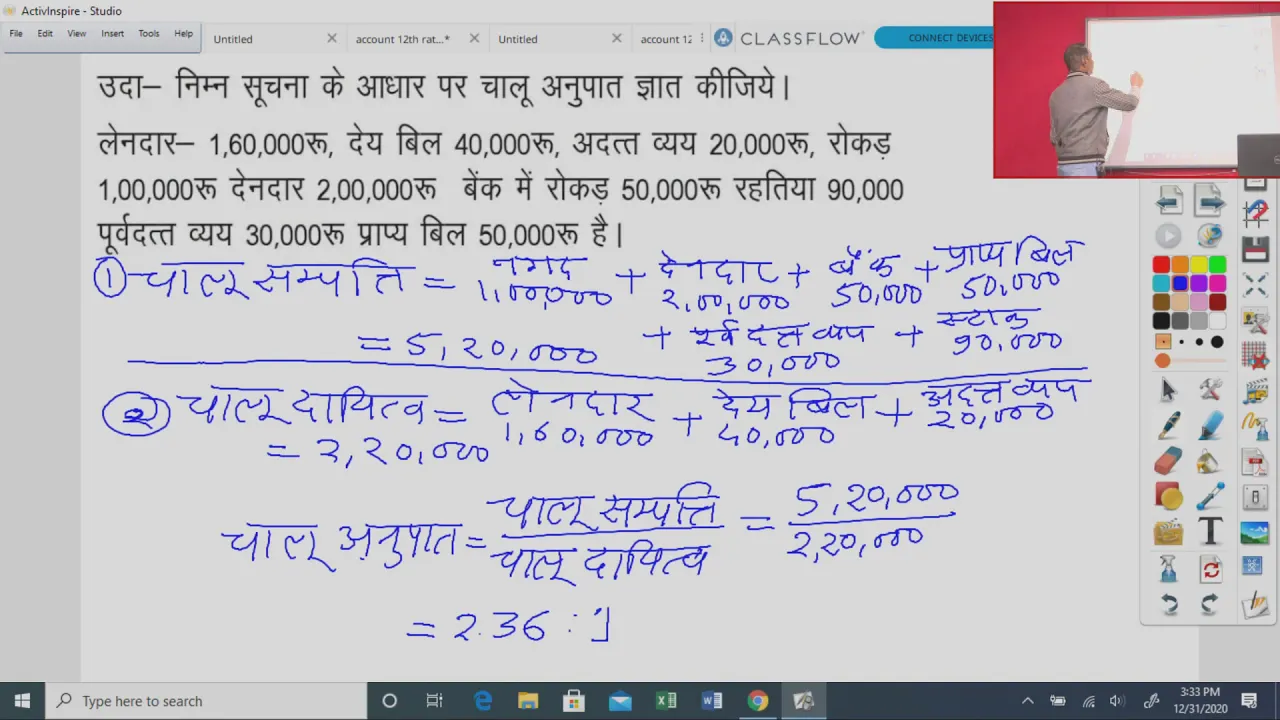 ActivInspire - Studio
File Edit View Insert Tools Help
Untitled
account 12th rat...*
Untitled
account 12
CLASSFLOW
CONNECT DEVICES
उदा– निम्न सूचना के आधार पर चालू अनुपात ज्ञात कीजिये।
लेनदार– 1,60,000रू, देय बिल 40,000रू, अदत्त व्यय 20,000रू, रोकड़
1,00,000रू देनदार 2,00,000रू बेंक में रोकड़ 50,000रू रहतिया 90,000
पूर्वदत्त व्यय 30,000रू प्राप्य बिल 50,000रू है।
① चालू सम्पत्ति = नगद + देनदार + बैंक + प्राप्य बिल
1,00,000 2,00,000 50,000 50,000
= 5,20,000 + पूर्वदत्त व्यय + स्टाक
30,000 90,000
② चालू दायित्व = लेनदार + देय बिल + अदत्त व्यय
1,60,000 40,000 20,000
= 2,20,000
चालू अनुपात = चालू सम्पत्ति = 5,20,000
चालू दायित्व 2,20,000
= 2.36 : 1
Type here to search
3:33 PM
12/31/2020